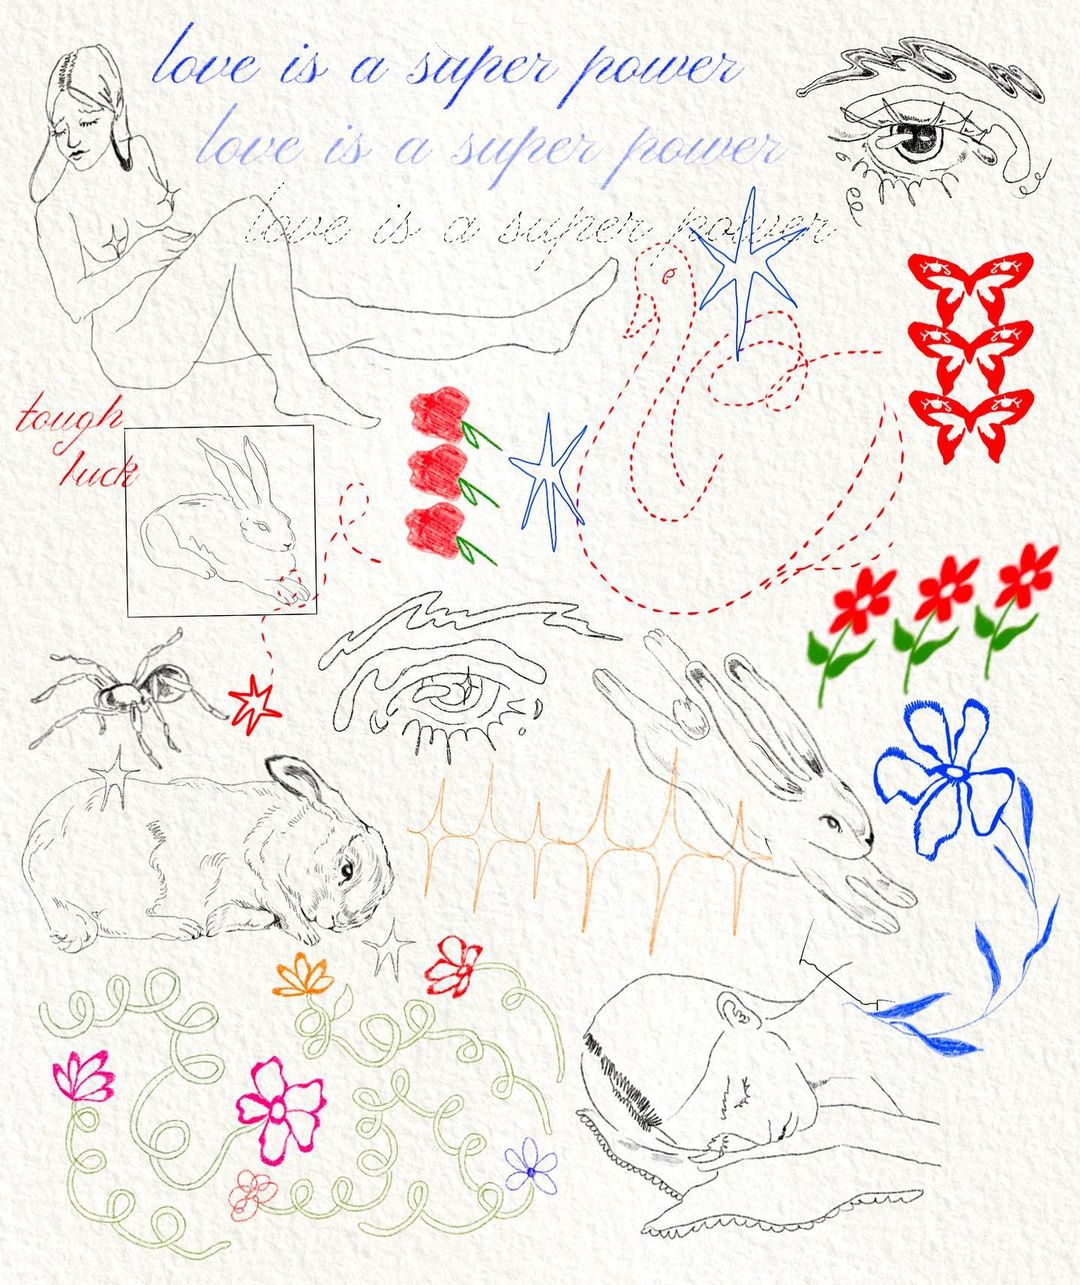 love is a super power
love is a super power
love is a super power
tough
luck